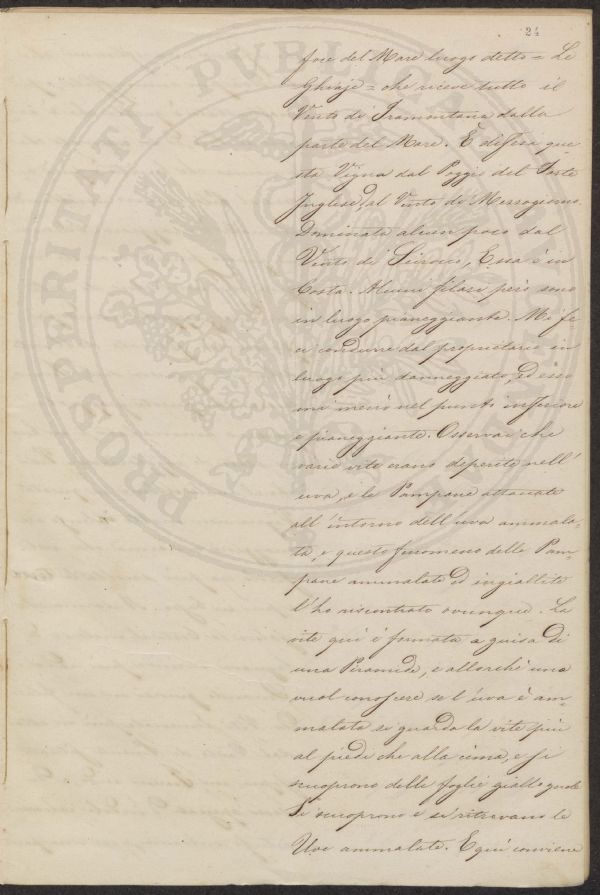 24
foce del Mare luogo detto = Le
Ghiaje = che riceve tutto il
Vento di Tramontana dalla
parte del Mare. È difesa que-
sta Vigna dal Poggio del Forte
Inglese, al Vento di Mezzogiorno.
Dominata alcun poco dal
Vento di Scirocco, Essa è in
Costa. Alcuni filari però sono
in luogo pianeggiante. Mi fe
ci condurre dal proprietario in
luogo più danneggiato, ed esso
mi menò nel punto inferiore
e pianeggiante. Osservai che
varie vite erano deperite nell'
uva, e le Pampane attaccate
all'intorno dell'uva ammala-
ta, e questo fenomeno delle Pam-
pane ammalate ed ingiallite
l'ho riscontrato ovunque. La
vite quì è formata a guisa di
una Piramide, e allorchè uno
vuol conoscere se l'uva è am-
malata si guarda la vite più
al piede che alla cima, e si
scuoprono delle foglie giallognole
Si scuoprono e si ritrovano le
Uve ammalate. E quì conviene
PROSPERITATI PVBLICAE